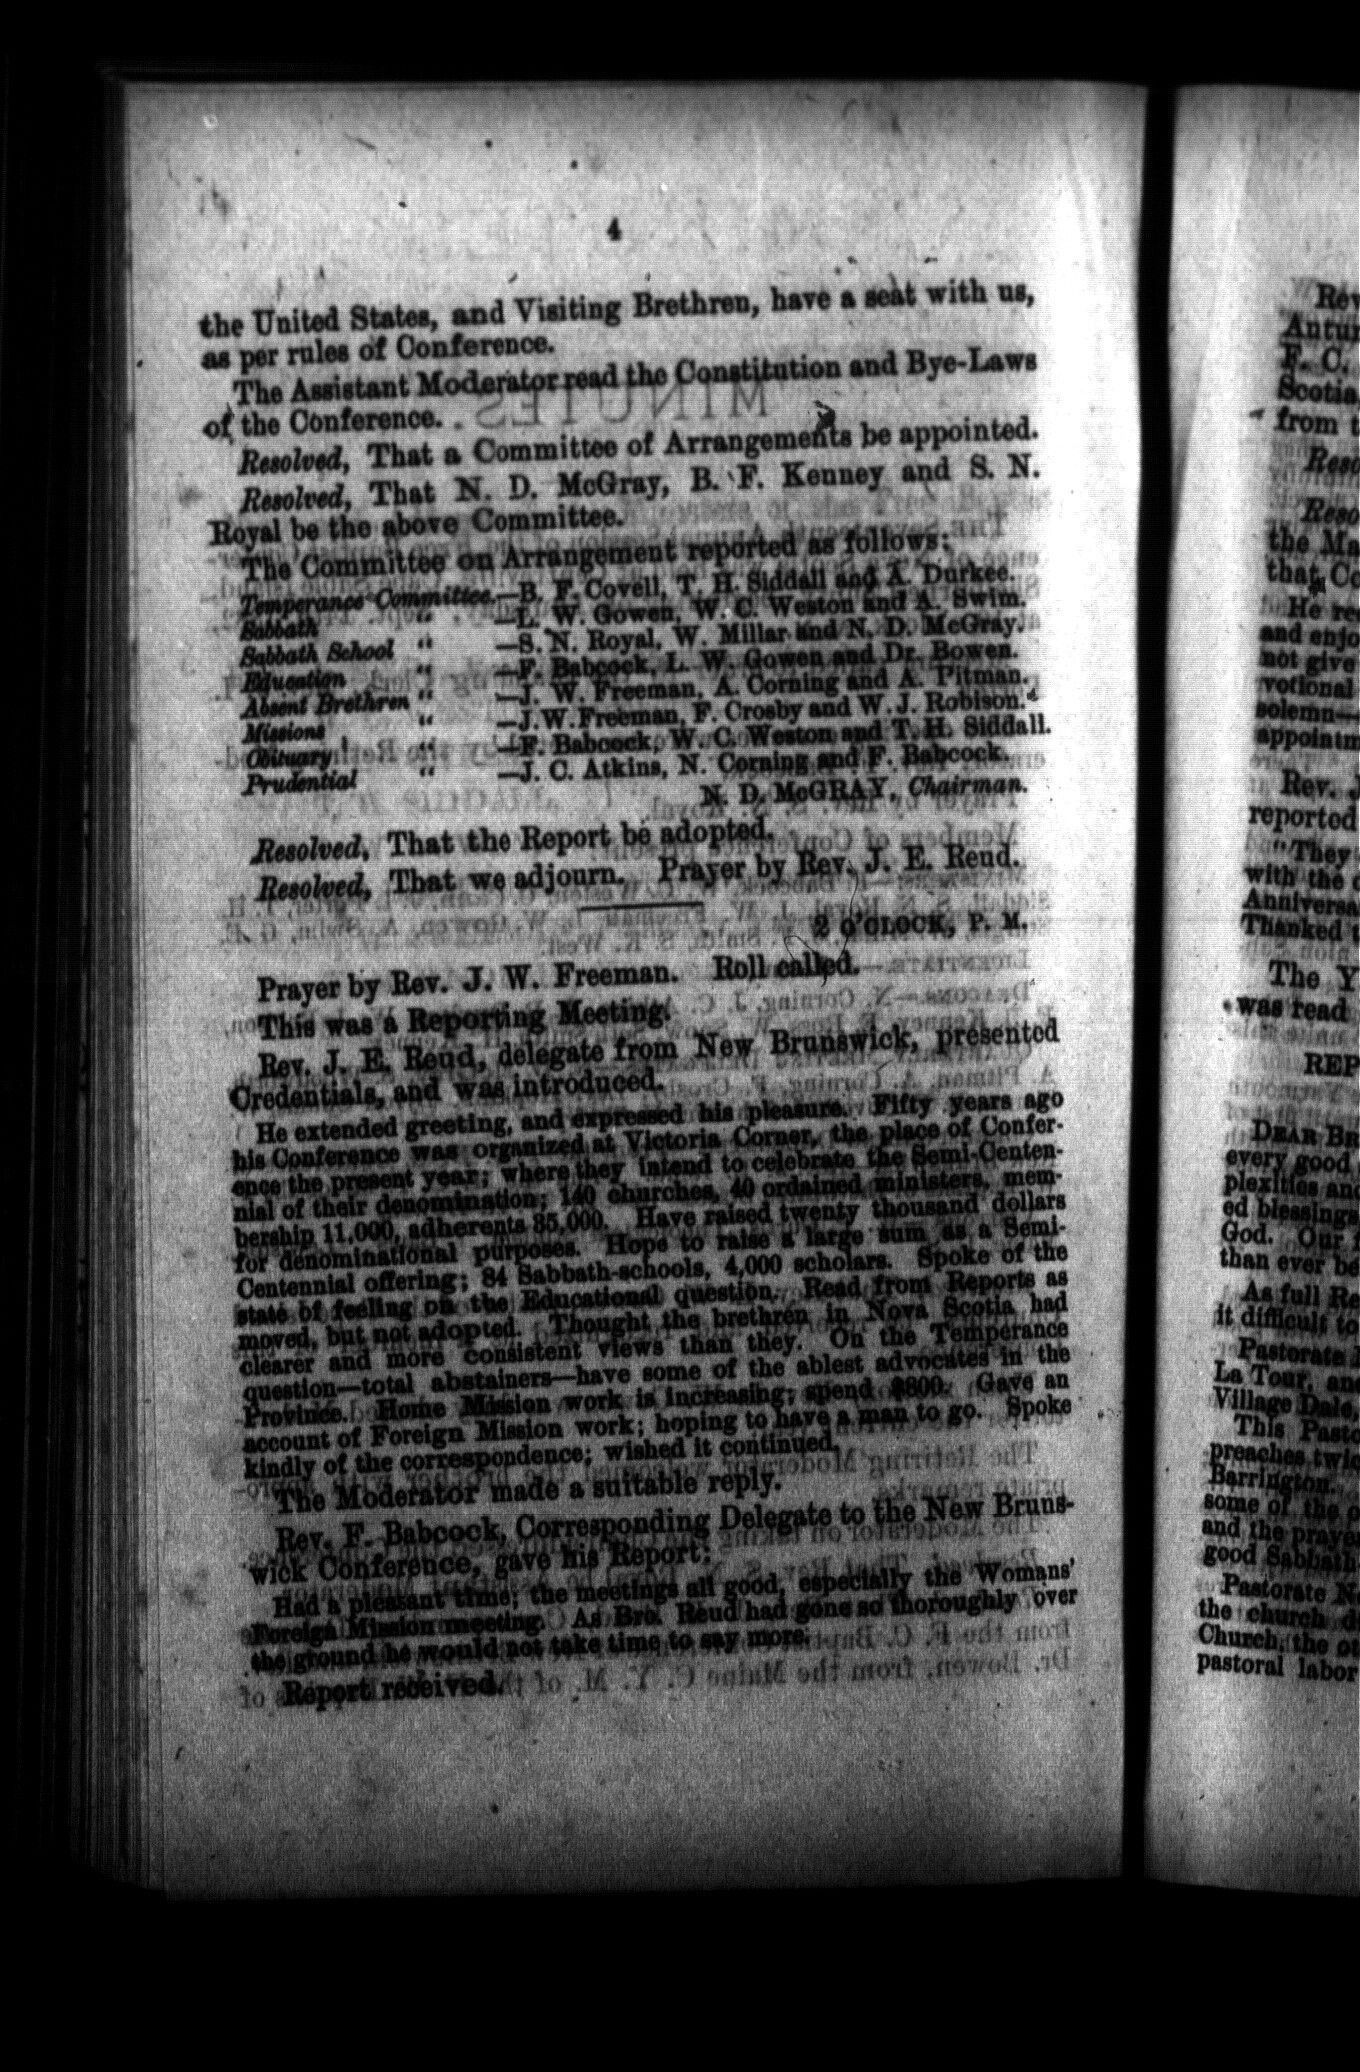 4
the United States, and Visiting Brethren, have a seat with us,
as per rules of Conference.
The Assistant Moderator read the Constitution and Bye-Laws
of the Conference.
Resolved, That a Committee of Arrangements be appointed.
Resolved, That N. D. McGray, B. F. Kenney and S. N.
Royal be the above Committee.
The Committee on Arrangement reported as follows:
Temperance Committee.—B. F. Covell, T. H. Siddall and A. Durkee.
Sabbath “ —L. W. Gowen, W. C. Weston and A. Swim.
Sabbath School “ —S. N. Royal, W. Millar and N. D. McGray.
Education “ —F. Babcock, L. W. Gowen and Dr. Bowen.
Absent Brethren “ —J. W. Freeman, A. Corning and A. Pitman.
Missions “ —J. W. Freeman, F. Crosby and W. J. Robison.
Obituary “ —F. Babcock, W. C. Weston and T. H. Siddall.
Prudential “ —J. C. Atkins, N. Corning and F. Babcock.
N. D. McGRAY, Chairman.
Resolved, That the Report be adopted.
Resolved, That we adjourn. Prayer by Rev. J. E. Reud.
2 O'CLOCK, P. M.
Prayer by Rev. J. W. Freeman. Roll called.
This was a Reporting Meeting.
Rev. J. E. Reud, delegate from New Brunswick, presented
Credentials, and was introduced.
He extended greeting, and expressed his pleasure. Fifty years ago
his Conference was organized at Victoria Corner, the place of Confer-
ence the present year; where they intend to celebrate the Semi-Centen-
nial of their denomination; 140 churches, 40 ordained ministers, mem-
bership 11,000, adherents 35,000. Have raised twenty thousand dollars
for denominational purposes. Hope to raise a large sum as a Semi-
Centennial offering; 84 Sabbath-schools, 4,000 scholars. Spoke of the
state of feeling on the Educational question. Read from Reports as
moved, but not adopted. Thought the brethren in Nova Scotia had
clearer and more consistent views than they. On the Temperance
question—total abstainers—have some of the ablest advocates in the
Province. Home Mission work is increasing; spend $800. Gave an
account of Foreign Mission work; hoping to have a man to go. Spoke
kindly of the correspondence; wished it continued.
The Moderator made a suitable reply.
Rev. F. Babcock, Corresponding Delegate to the New Bruns-
wick Conference, gave his Report:
Had a pleasant time; the meetings all good, especially the Womans'
Foreign Mission meeting. As Bro. Reud had gone so thoroughly over
the ground he would not take time to say more.
Report received.